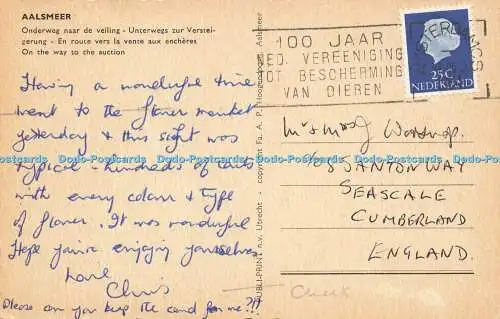 AALSMEER
Onderweg naar de veiling - Unterwegs zur Verstei-
gerung - En route vers la vente aux enchères
On the way to the auction
Having a wonderful time
went to the flower market
yesterday & this sight was
typical - hundreds of carts
with every colour & type
of flower. It was wonderful
Hope you're enjoying yourselves
Love
Chris
Please can you keep the card for me?!!
PUBLI-PRINT n.v. Utrecht - copyright Fa. A. P. Hoogenboom, Aalsmeer
AMSTERDAM CS
100 JAAR
NED. VEREENIGING
TOT BESCHERMING
VAN DIEREN
25c
NEDERLAND
Mr & Mrs J
SANTON WAY
SEASCALE
CUMBERLAND
ENGLAND.
Dodo-Postcards Dodo-Postcards Dodo-Postcards Dodo-Postcards Dodo-Postcards